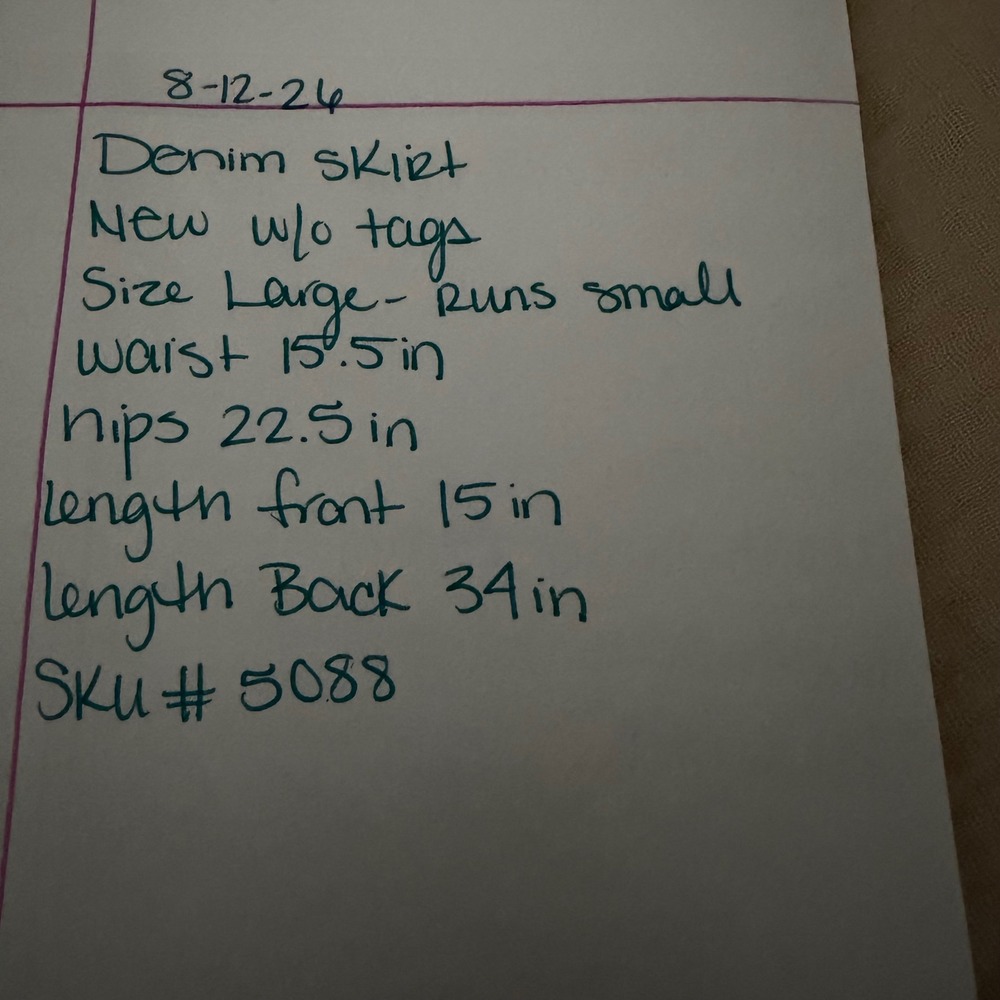 8-12-26
Denim skirt
New w/o tags
Size Large- Runs small
waist 15.5in
hips 22.5in
length front 15in
length Back 34in
SKU # 5088